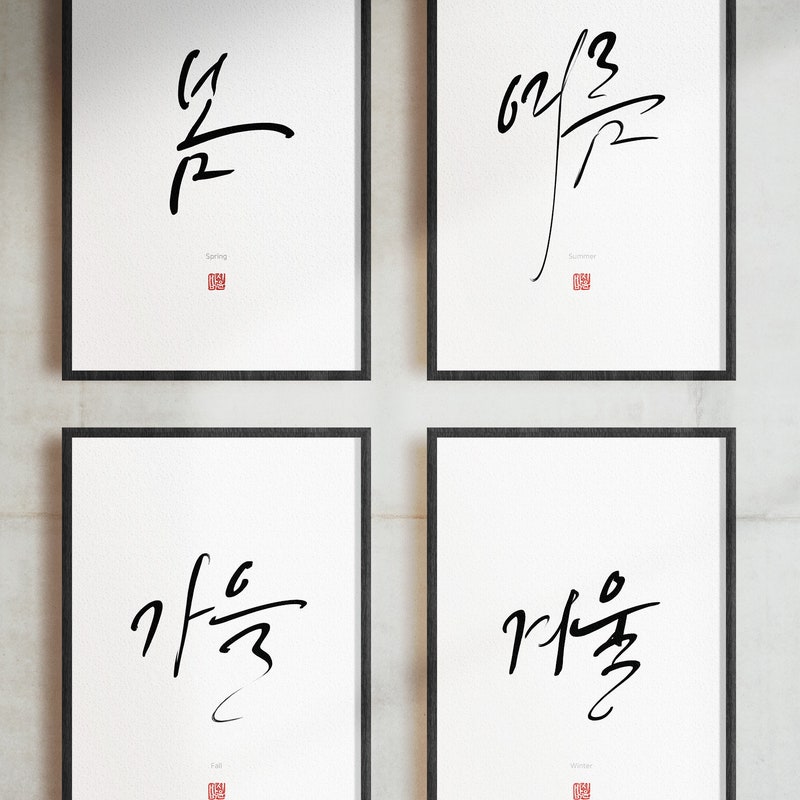 봄
Spring
여름
Summer
가을
Fall
겨울
Winter